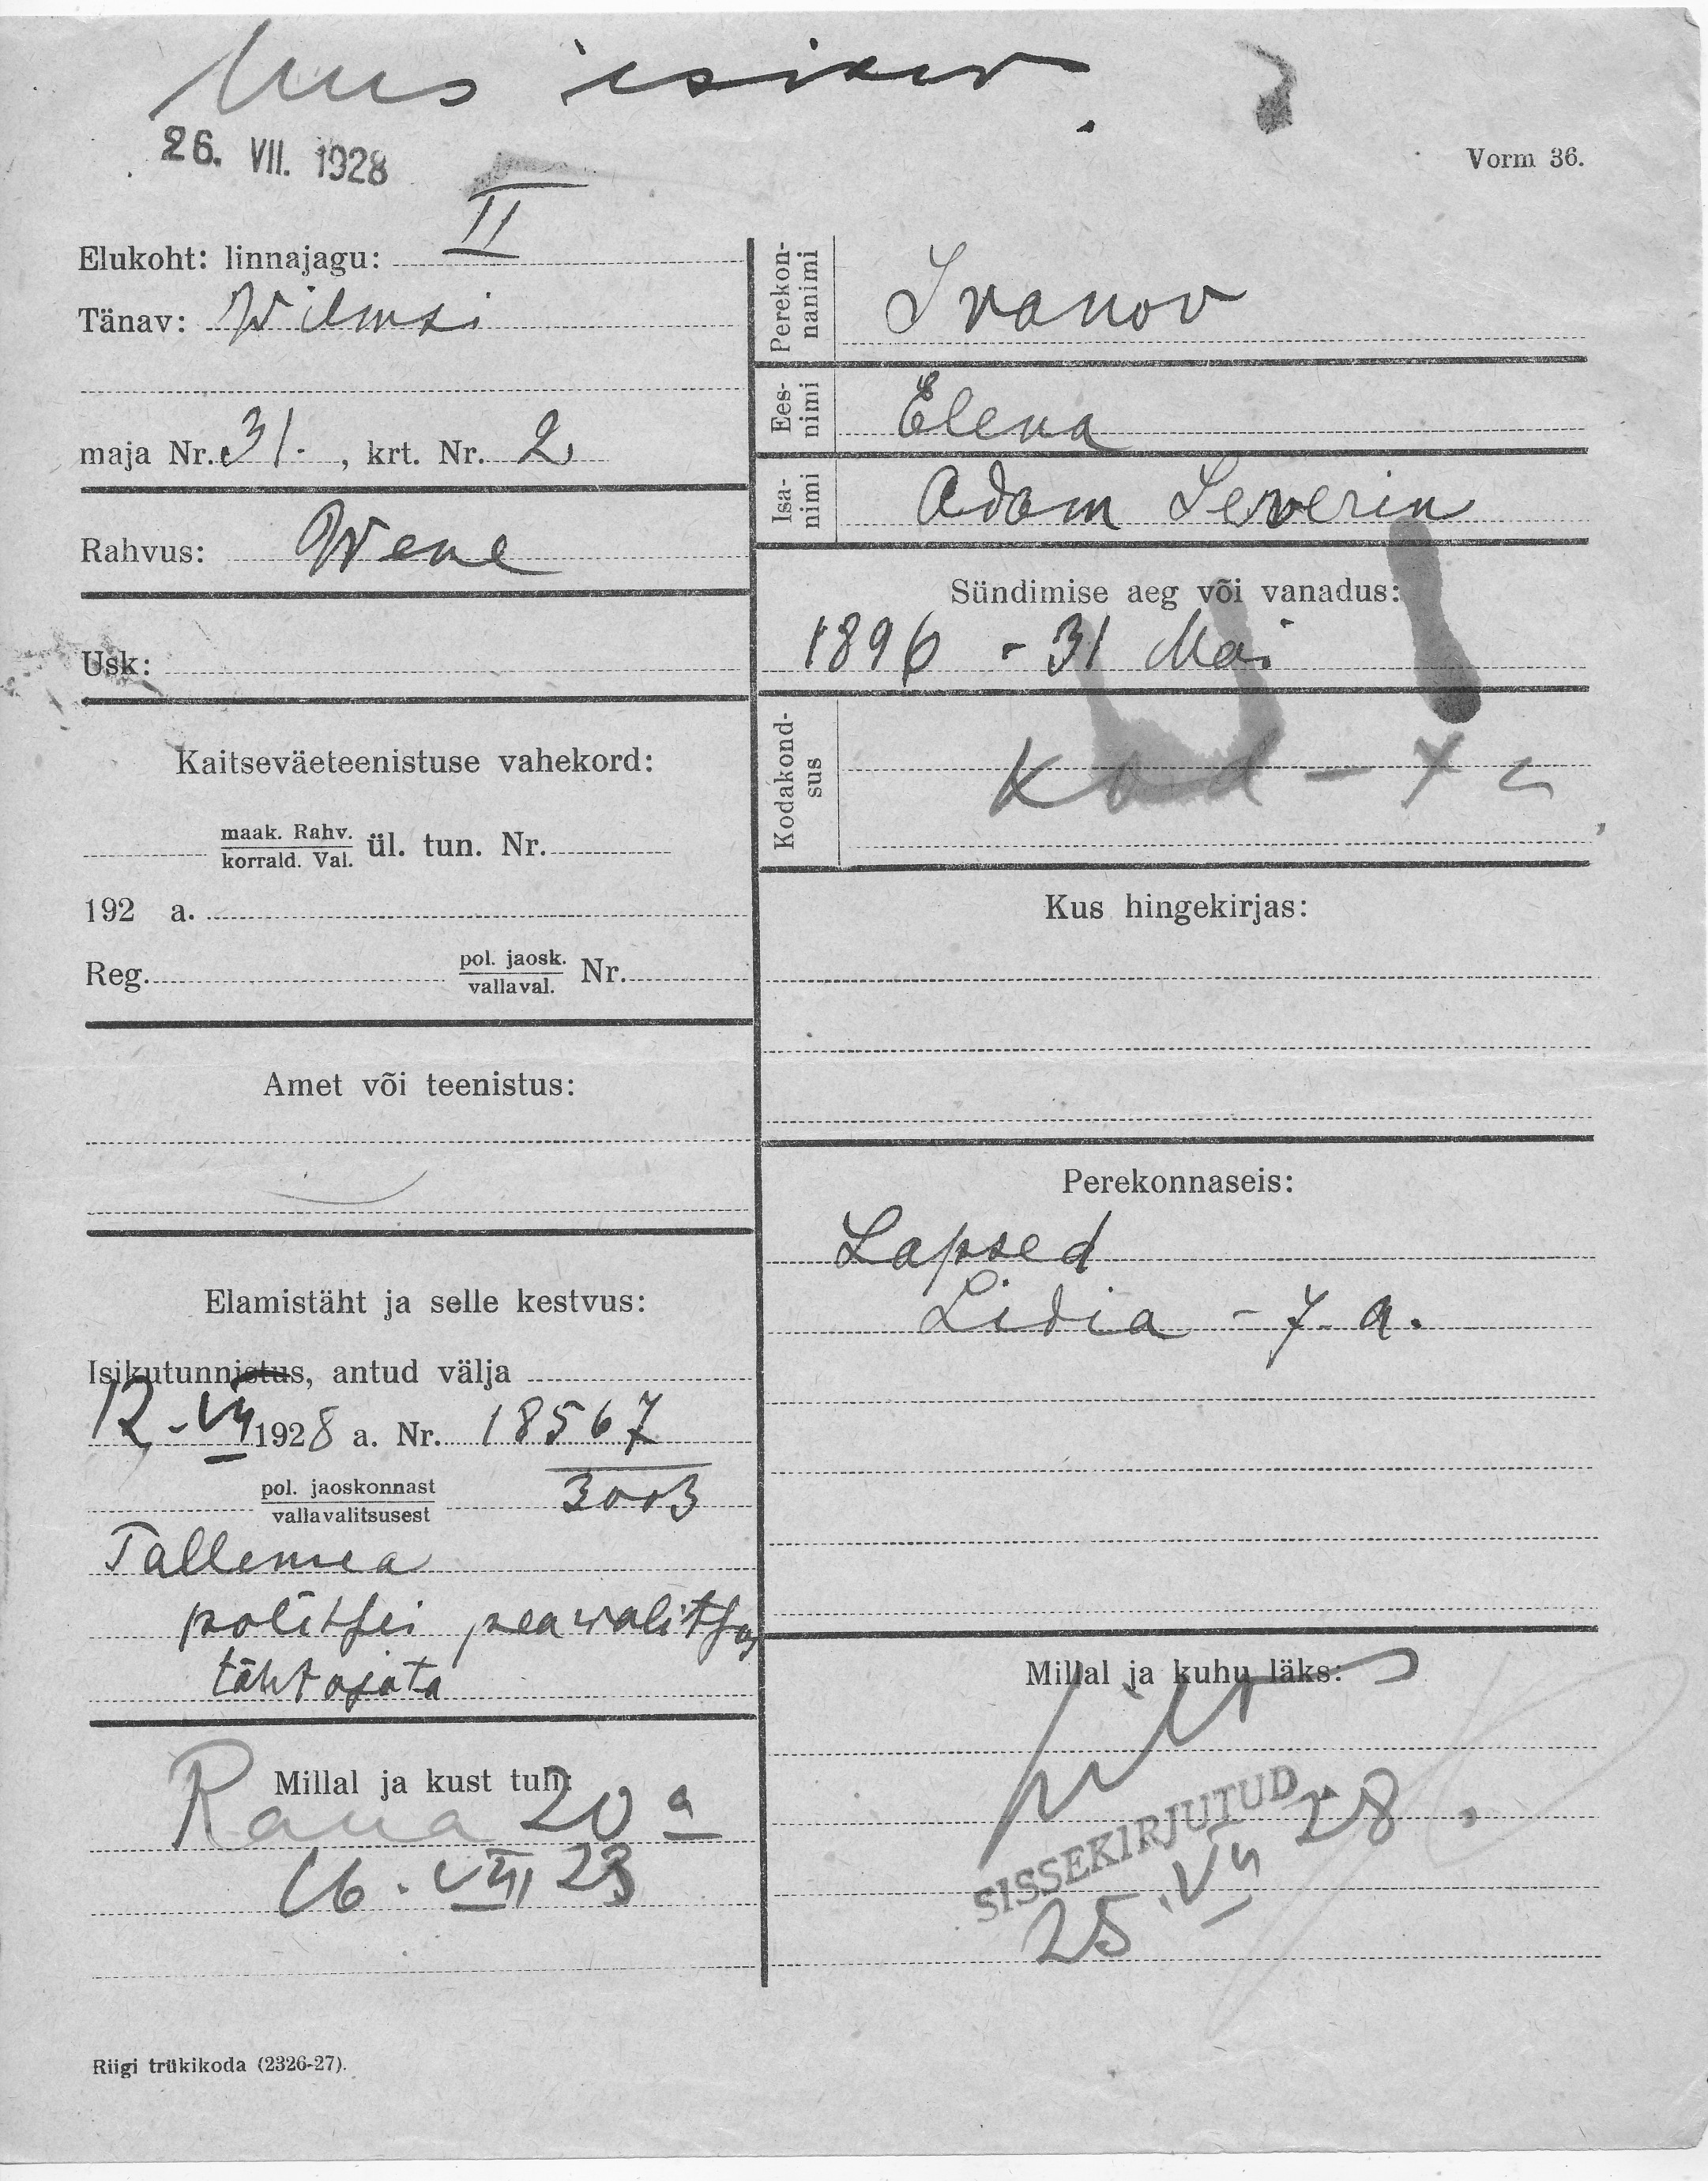 Uus
26. VII. 1928
Vorm 36.
Elukoht: linnajagu: II
Tänav: Wilmsi
maja Nr. 31. , krt. Nr. 2
Rahvus: Wene
Usk:
Kaitseväeteenistuse vahekord:
maak. Rahv.
korrald. Val. ül. tun. Nr.
192 a.
Reg. pol. jaosk.
vallaval. Nr.
Amet või teenistus:
Elamistäht ja selle kestvus:
Isikutunnistus, antud välja
12. VII 1928 a. Nr. 18567
pol. jaoskonnast
vallavalitsusest 3003
Tallinna
politsei peawalitsus
tähtajata
Millal ja kust tuli:
Rana 20 a
16. VIII 23
Perekon-
nanimi Ivanov
Ees-
nimi Elena
Isa-
nimi Adam Severin
Sündimise aeg või vanadus:
1896 - 31 Mai
Kodakond-
sus
Kod - ta
Kus hingekirjas:
Perekonnaseis:
Lapsed
Lidia - 7 a.
Millal ja kuhu läks:
SISSEKIRJUTUD
25. VII 28.
Riigi trükikoda (2326-27).